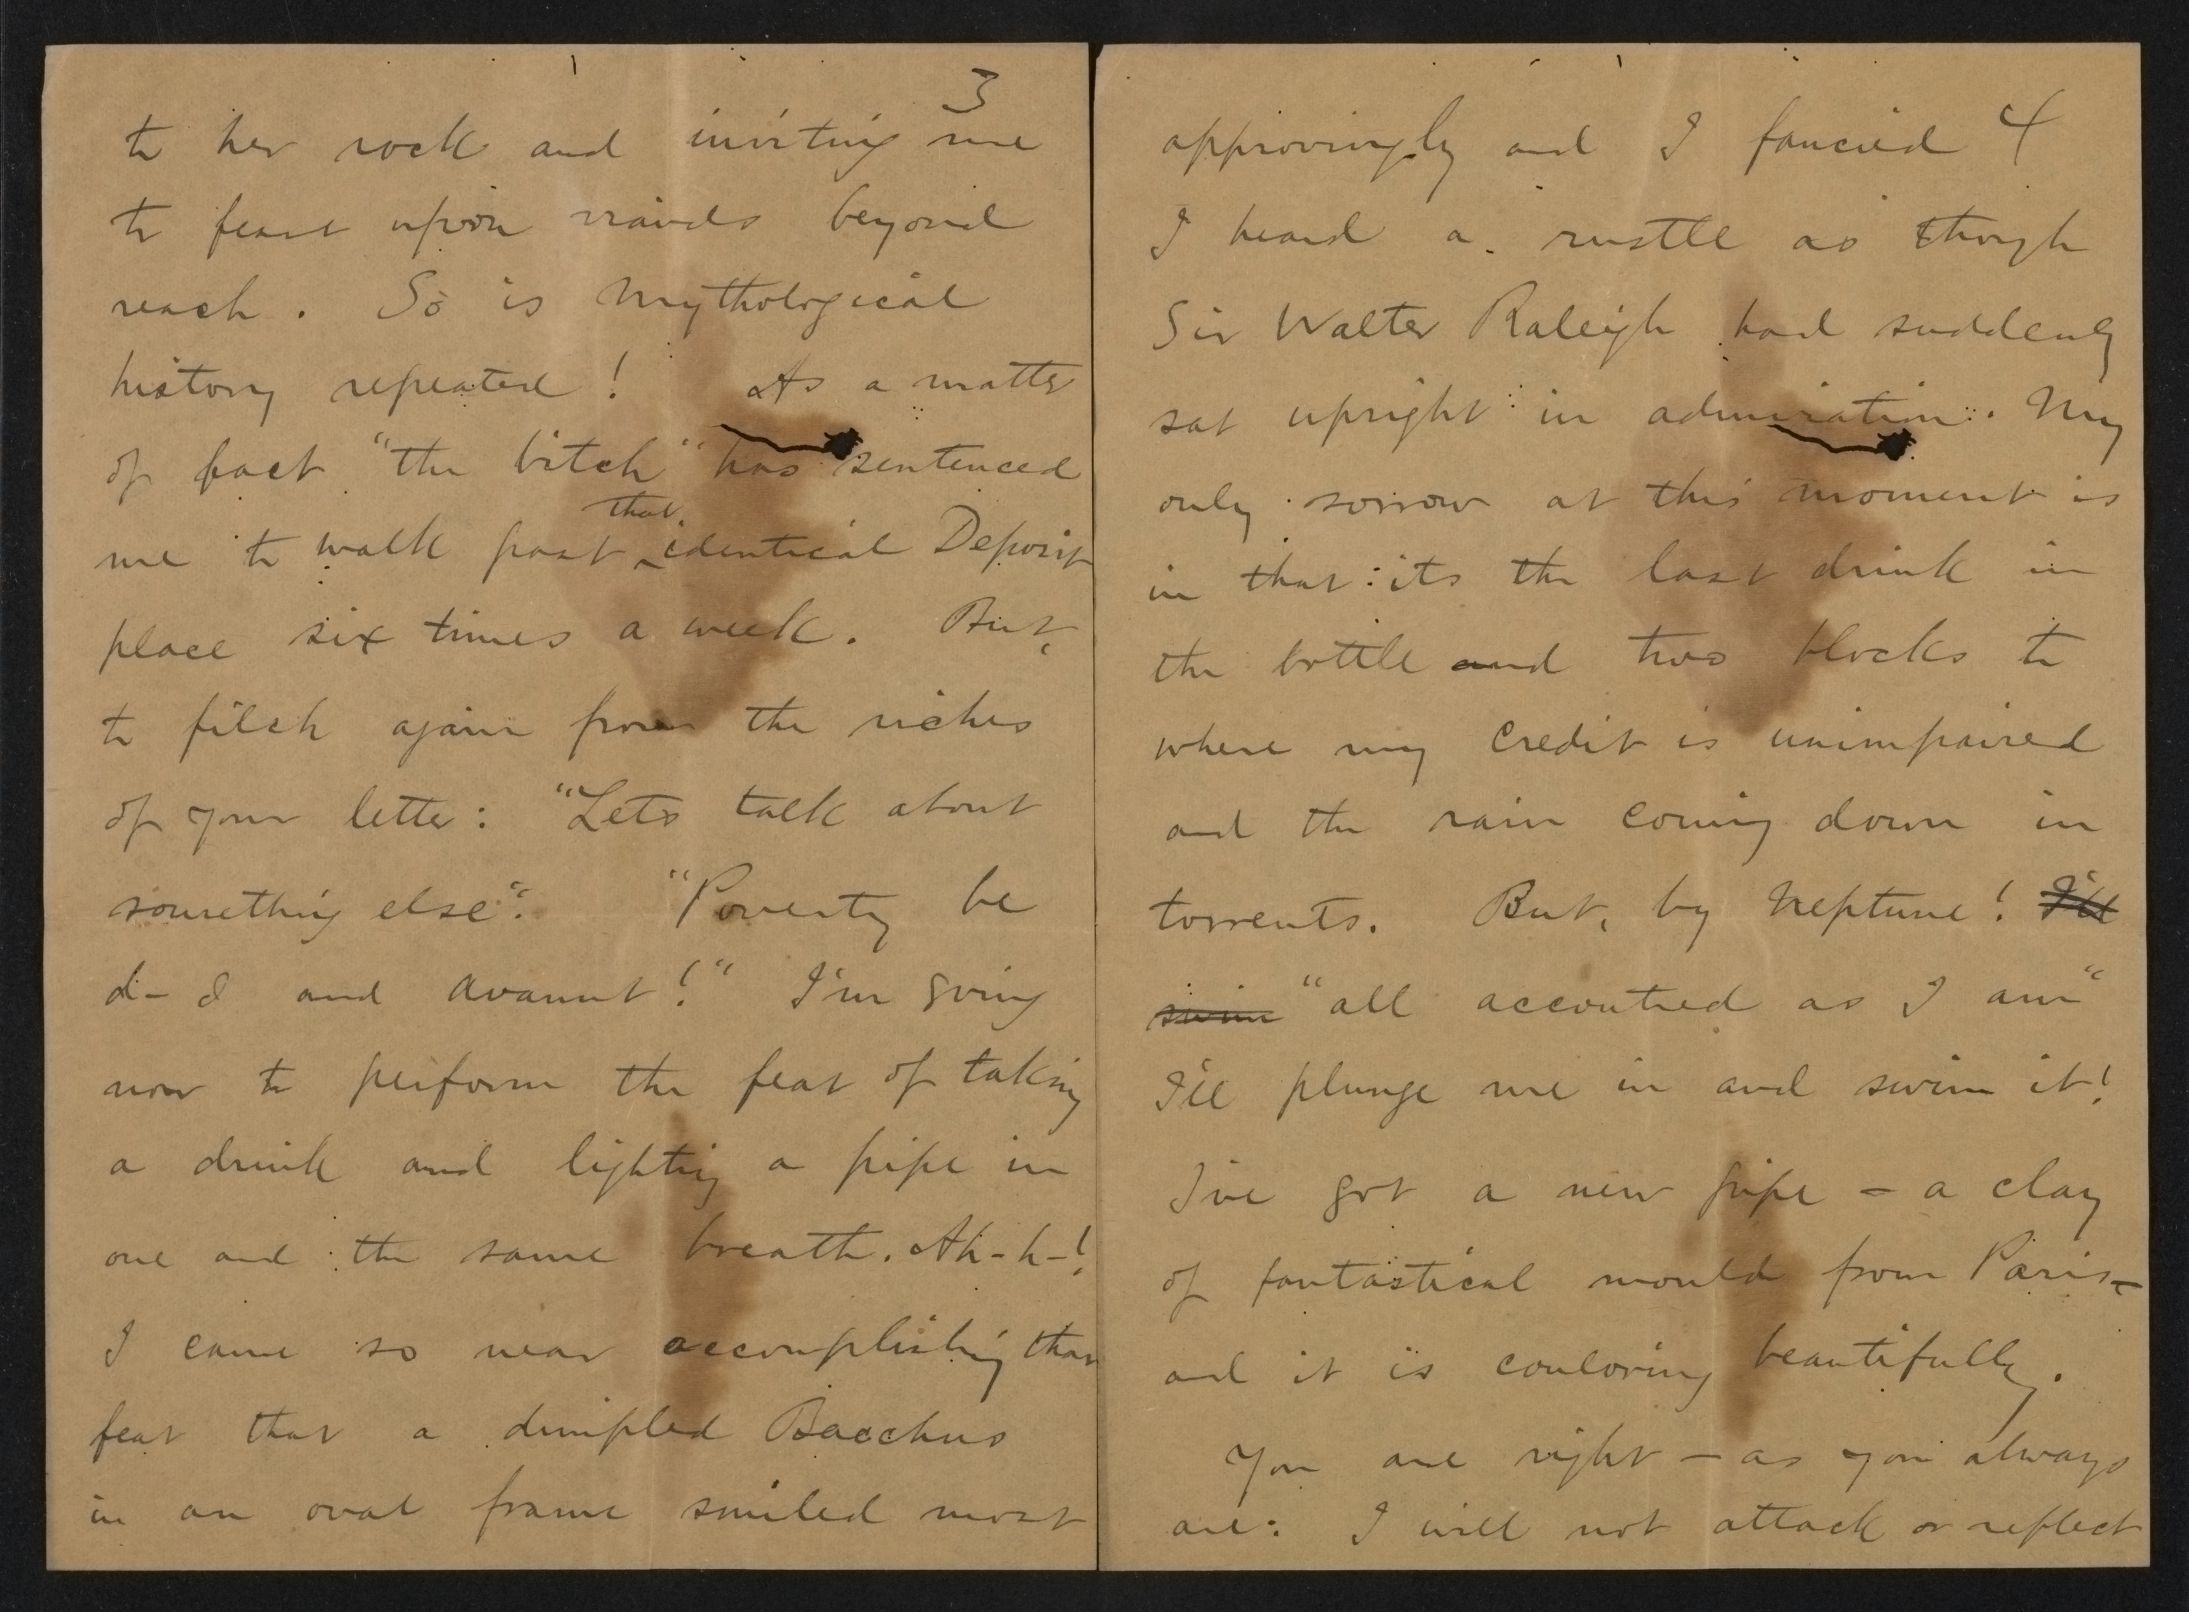 3
to her rock and inviting me
to feast upon viands beyond
reach. So is Mythological
history repeated! As a matter
of fact "the bitch" has sentenced
that
me to walk past identical Deposit
place six times a week. But,
to filch again from the riches
of your letter: "Lets talk about
something else". "Poverty be
d-d and avaunt!" I'm going
now to perform the feat of taking
a drink and lighting a pipe in
one and the same breath. Ah-h-!
I came so near accomplishing that
feat that a dimpled Bacchus
in an oval frame smiled most
4
approvingly and I fancied
I heard a rustle as though
Sir Walter Raleigh had suddenly
sat upright in admiration. My
only sorrow at this moment is
in that its the last drink in
the bottle and two blocks to
where my credit is unimpaired
and the rain coming down in
torrents. But, by Neptune! I'll
swim "all accoutred as I am"
I'll plunge me in and swim it!
I've got a new pipe - a clay
of fantastical mould from Paris-
and it is couloring beautifully.
You are right - as you always
are: I will not attack or reflect